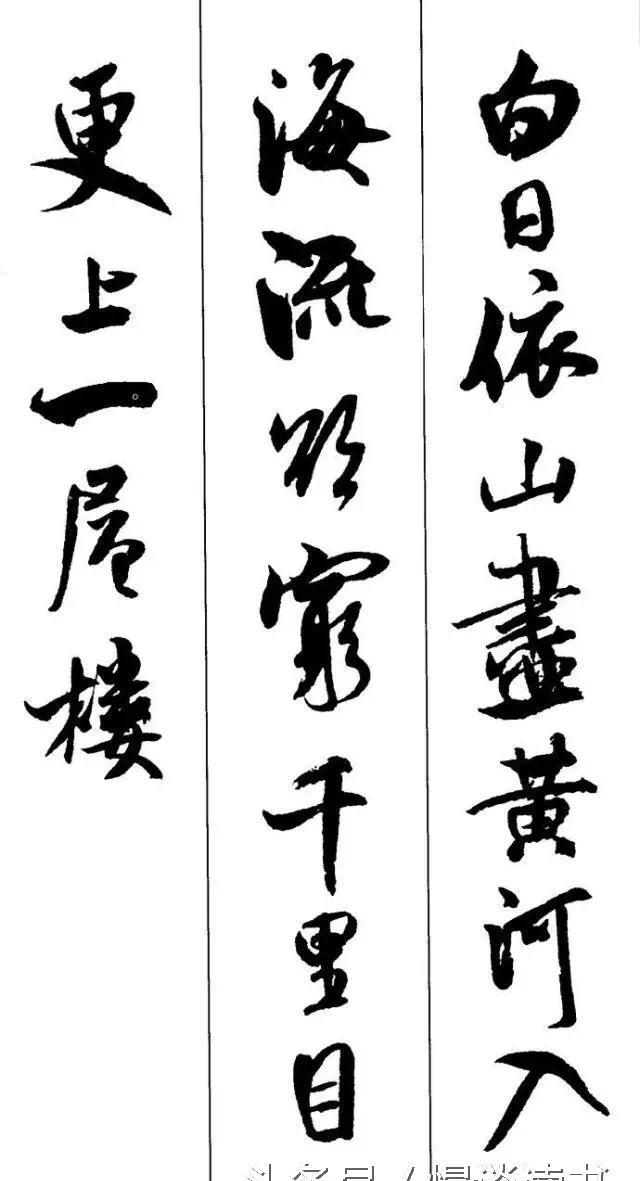 白日依山盡黃河入
海流欲窮千里目
更上一层樓